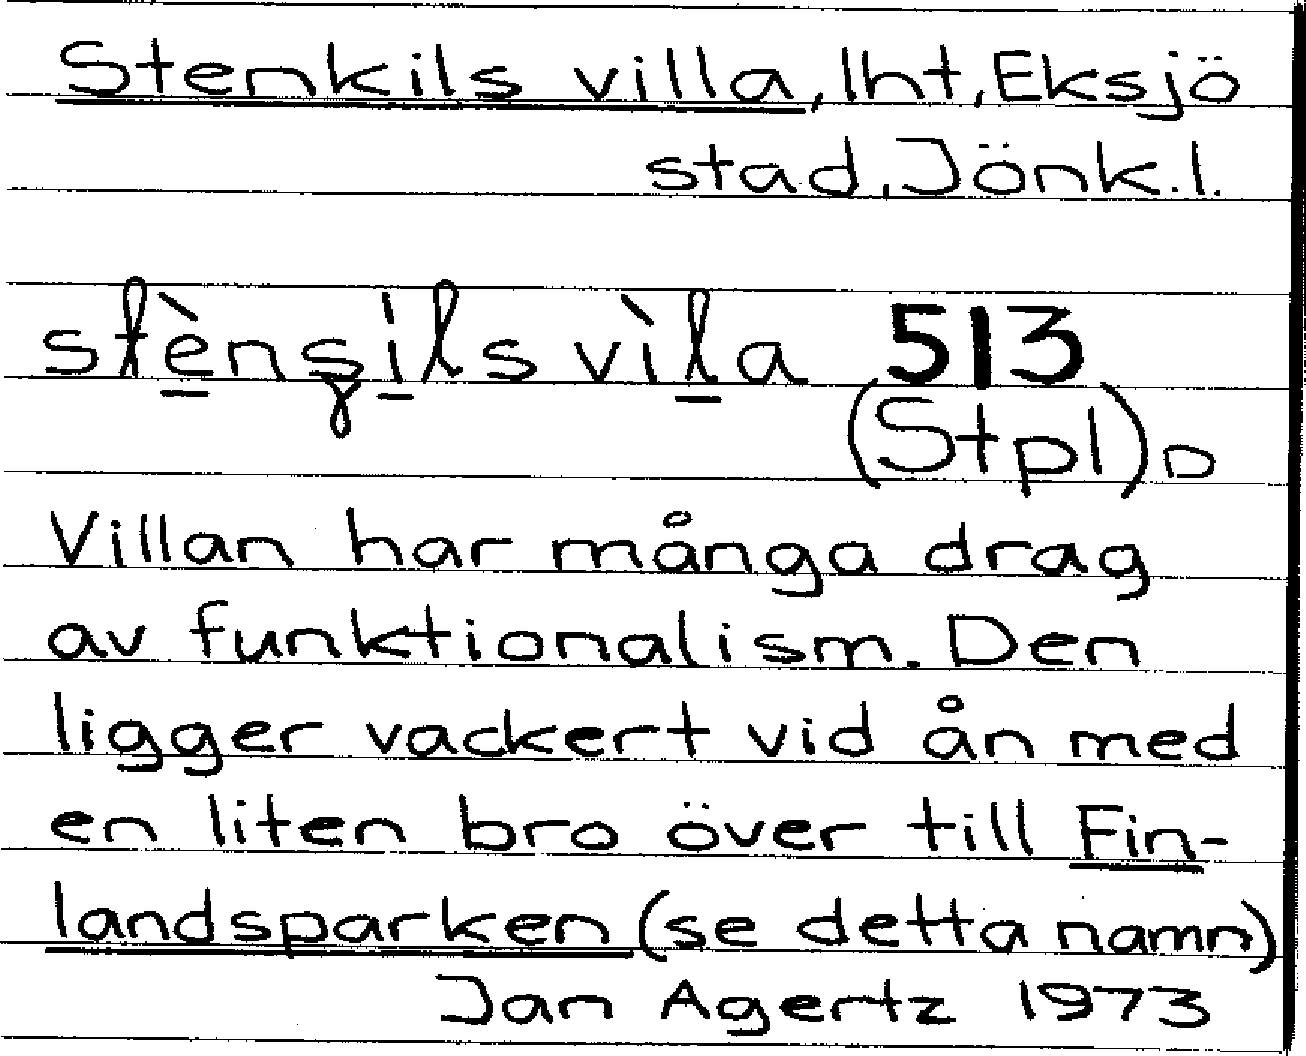 Stenkils villa, lht, Eksjö
stad, Jönk.l.
stènşils vìla 513
(Stpl) D
Villan har många drag
av funktionalism. Den
ligger vackert vid ån med
en liten bro över till Fin-
landsparken (se detta namn)
Jan Agertz 1973